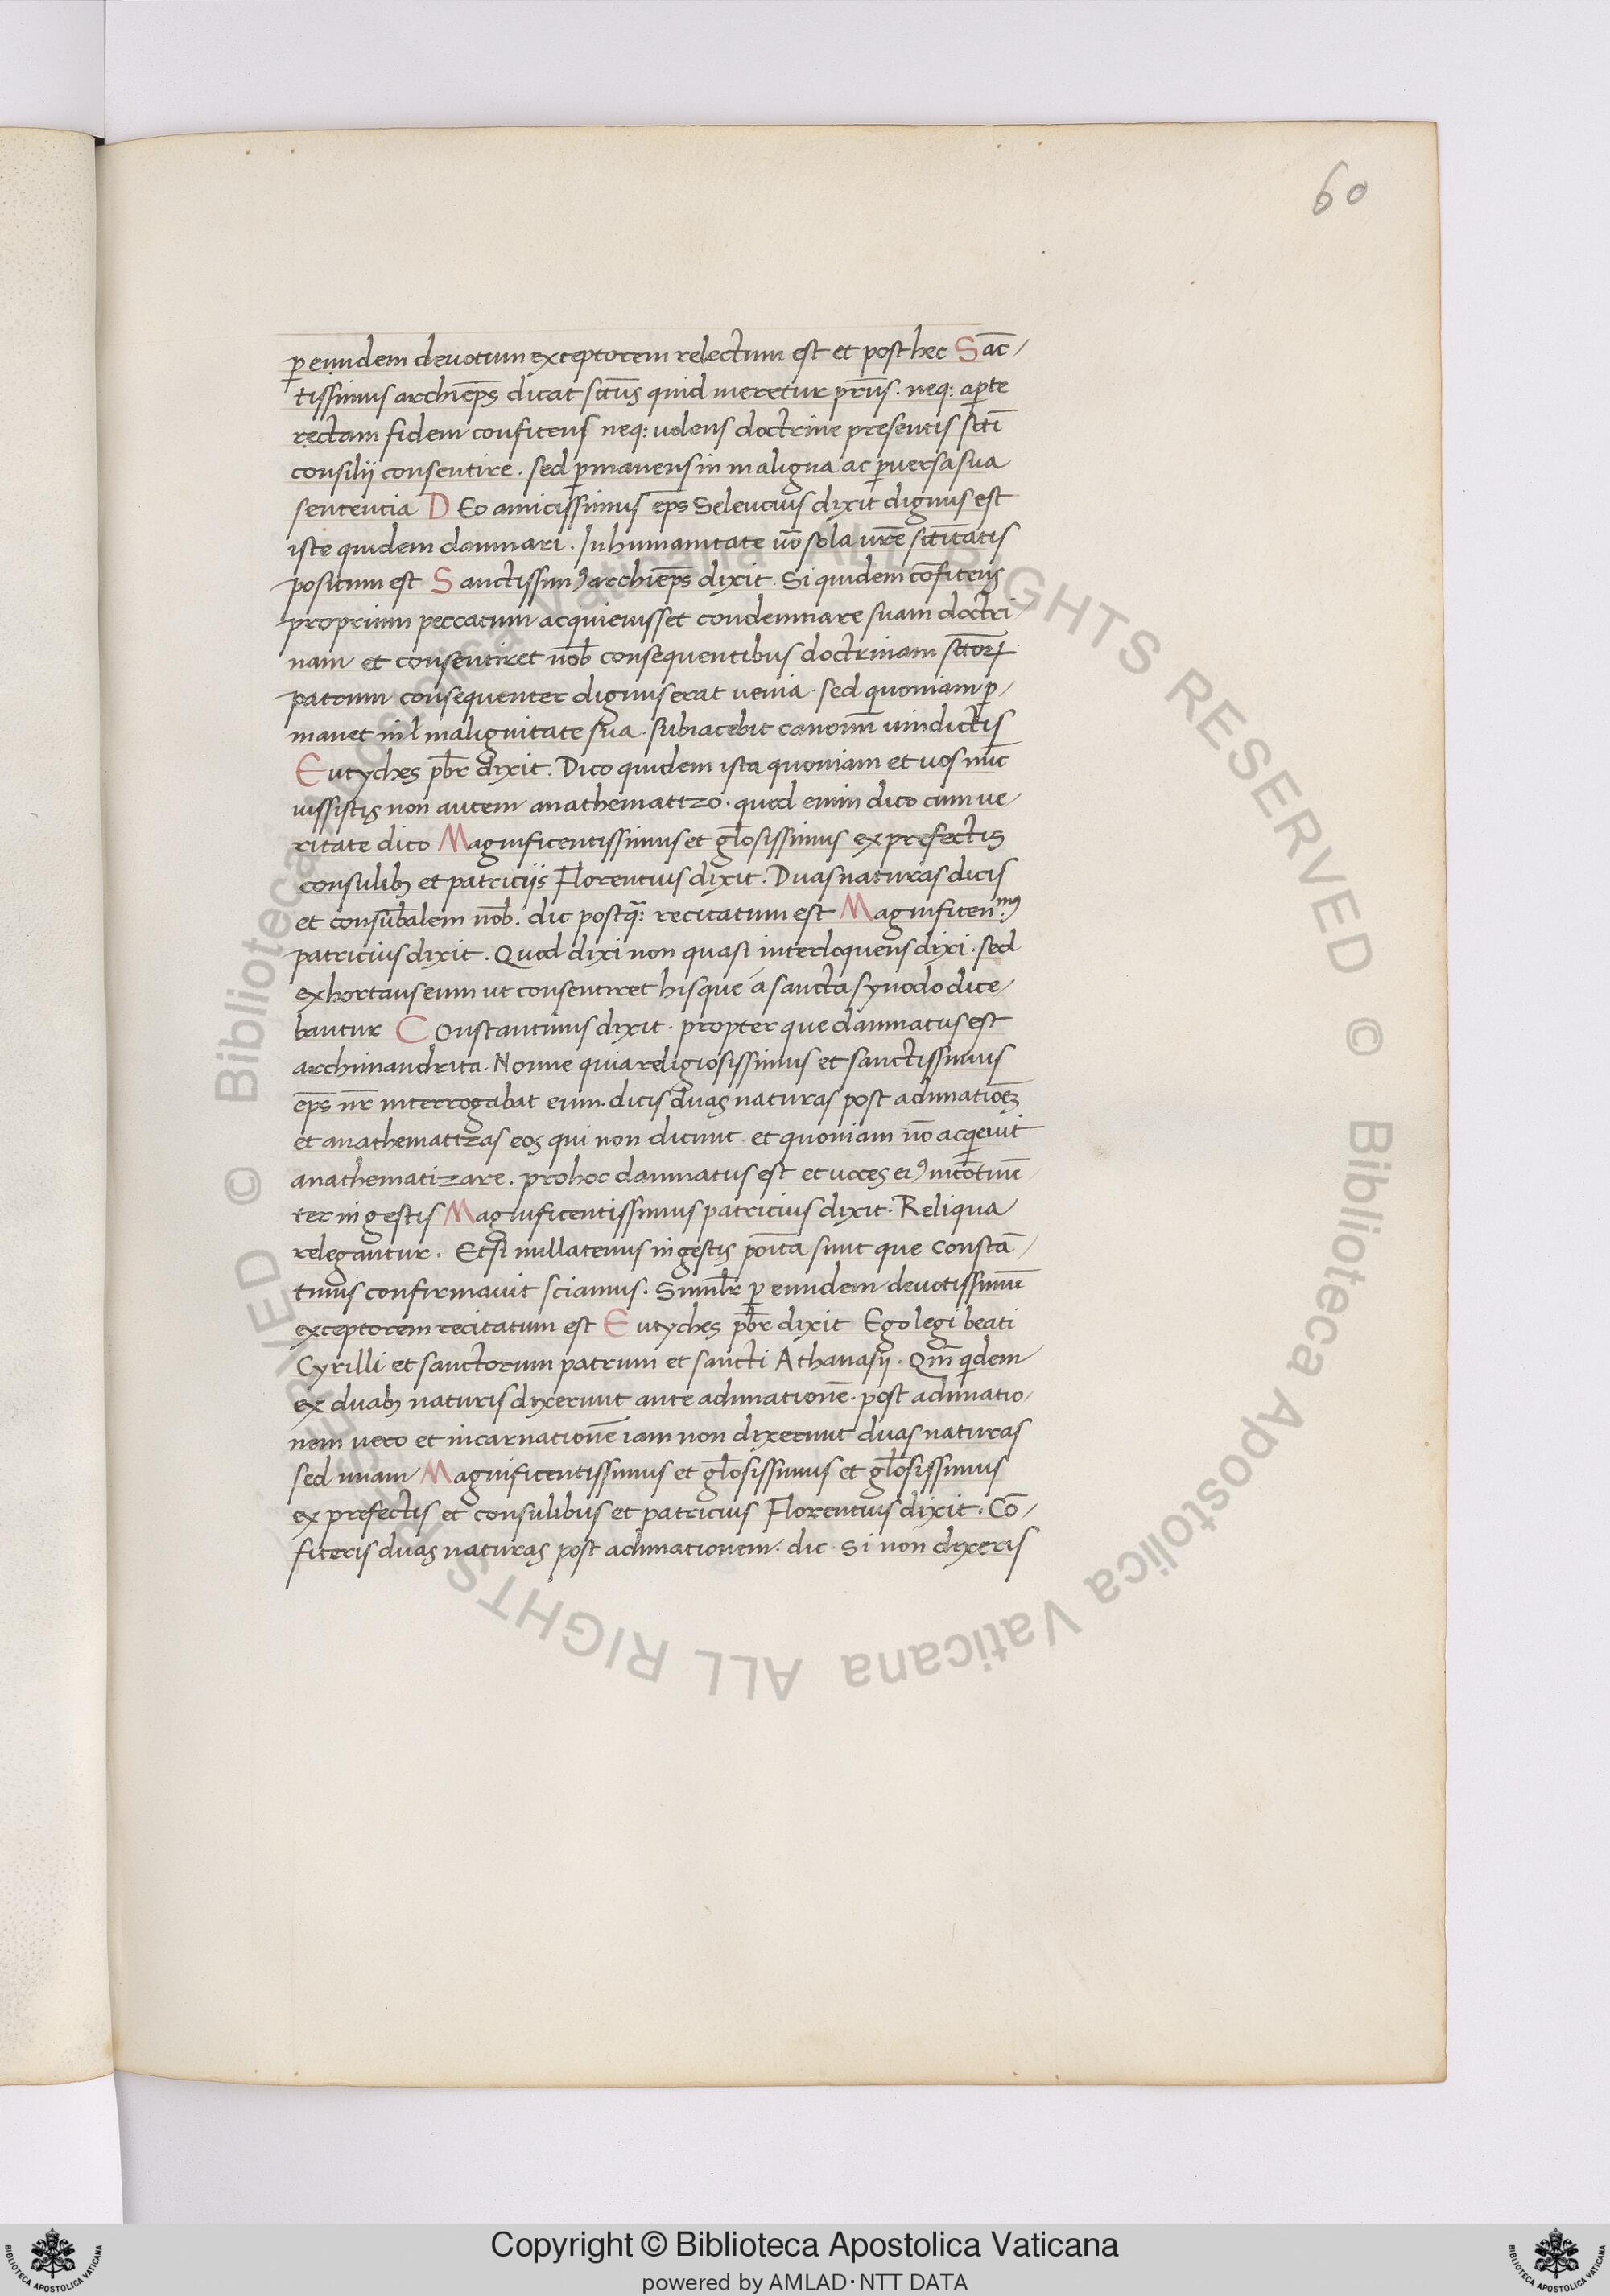 60
p̲ eundem deuotum exceptorem relectum est et post hec Sāc-
tissimus archiep̄s dicat sctūs quid meretur prīus. neq: ap̲te
rectam fidem confitens neq: uolens doctrine presentis sctī
consilii consentire. sed p̲manens in maligna ac p̲uersa sua
sententia DEo amicissimus ep̄s Seleucius dixit dignus est
iste quidem damnari. In humanitate ūo sola ur̄e sctītatis
positum est Sanctissimꝰ archiep̄s dixit. Si quidem cōfitens
proprium peccatum acquieuisset condemnare suam doctri
nam et consentiret nob̄ consequentibus doctrinam sctōrꝝ
patrum consequenter dignus erat uenia. sed quoniam p̲-
manet in l malignitate sua. subiacebit canonū uindictis
Eutyches pb̄r dixit. Dico quidem ista quoniam et uos nūc
iussistis non autem anathemattzo. quod enim dico cum ue
ritate dico Magnificentissimus et gl̄osissimus ex prefectis
consulibꝫ et patriciis Florentius dixit. Duas naturas dicis
et consub̄alem nob̄. dic postq̄: recitatum est Magnificen.mꝰ
patricius dixit. Quod dixi non quasi interloquens dixi. sed
exhortans eum ut consentiret hisque á sancta synodo dice-
bantur Constantinus dixit. propter que damnatus est
archimandrita. Nonne quia religiosissimus et sanctissimus
ep̄s nr̄ interrogabat eum. dicis duas naturas post adunatiōeꝫ
et anathemattzas eos qui non dicunt. et quoniam nō acqieuit
anathematizare. pro hoc damnatus est et uoces eiꝰ incōtinē-
ter in gestis Magnificentissimus patricius dixit. Reliqua
relegantur. Etsi nullatenus in gestis poīta sunt que constā-
tinus confirmauit sciamus. Simil̄r p̲ eundem deuotissimū
exceptorem recitatum est Eutyches pb̄r dixit Ego legi beati
Cyrilli et sanctorum patrum et sancti Athanasij. Qm̄ qidem
ex duabꝫ naturis dixerunt ante adunationē. post adunatio-
nem uero et incarnationē iam non dixerunt duas naturas
sed unam Magnificentissimus et gl̄osissimus et gl̄osissimus
ex prefectis et consulibus et patricius Florentius dixit. Cō-
fiteris duas naturas post adunationem. dic. si non dixeris
Copyright © Biblioteca Apostolica Vaticana
powered by AMLAD·NTT DATA